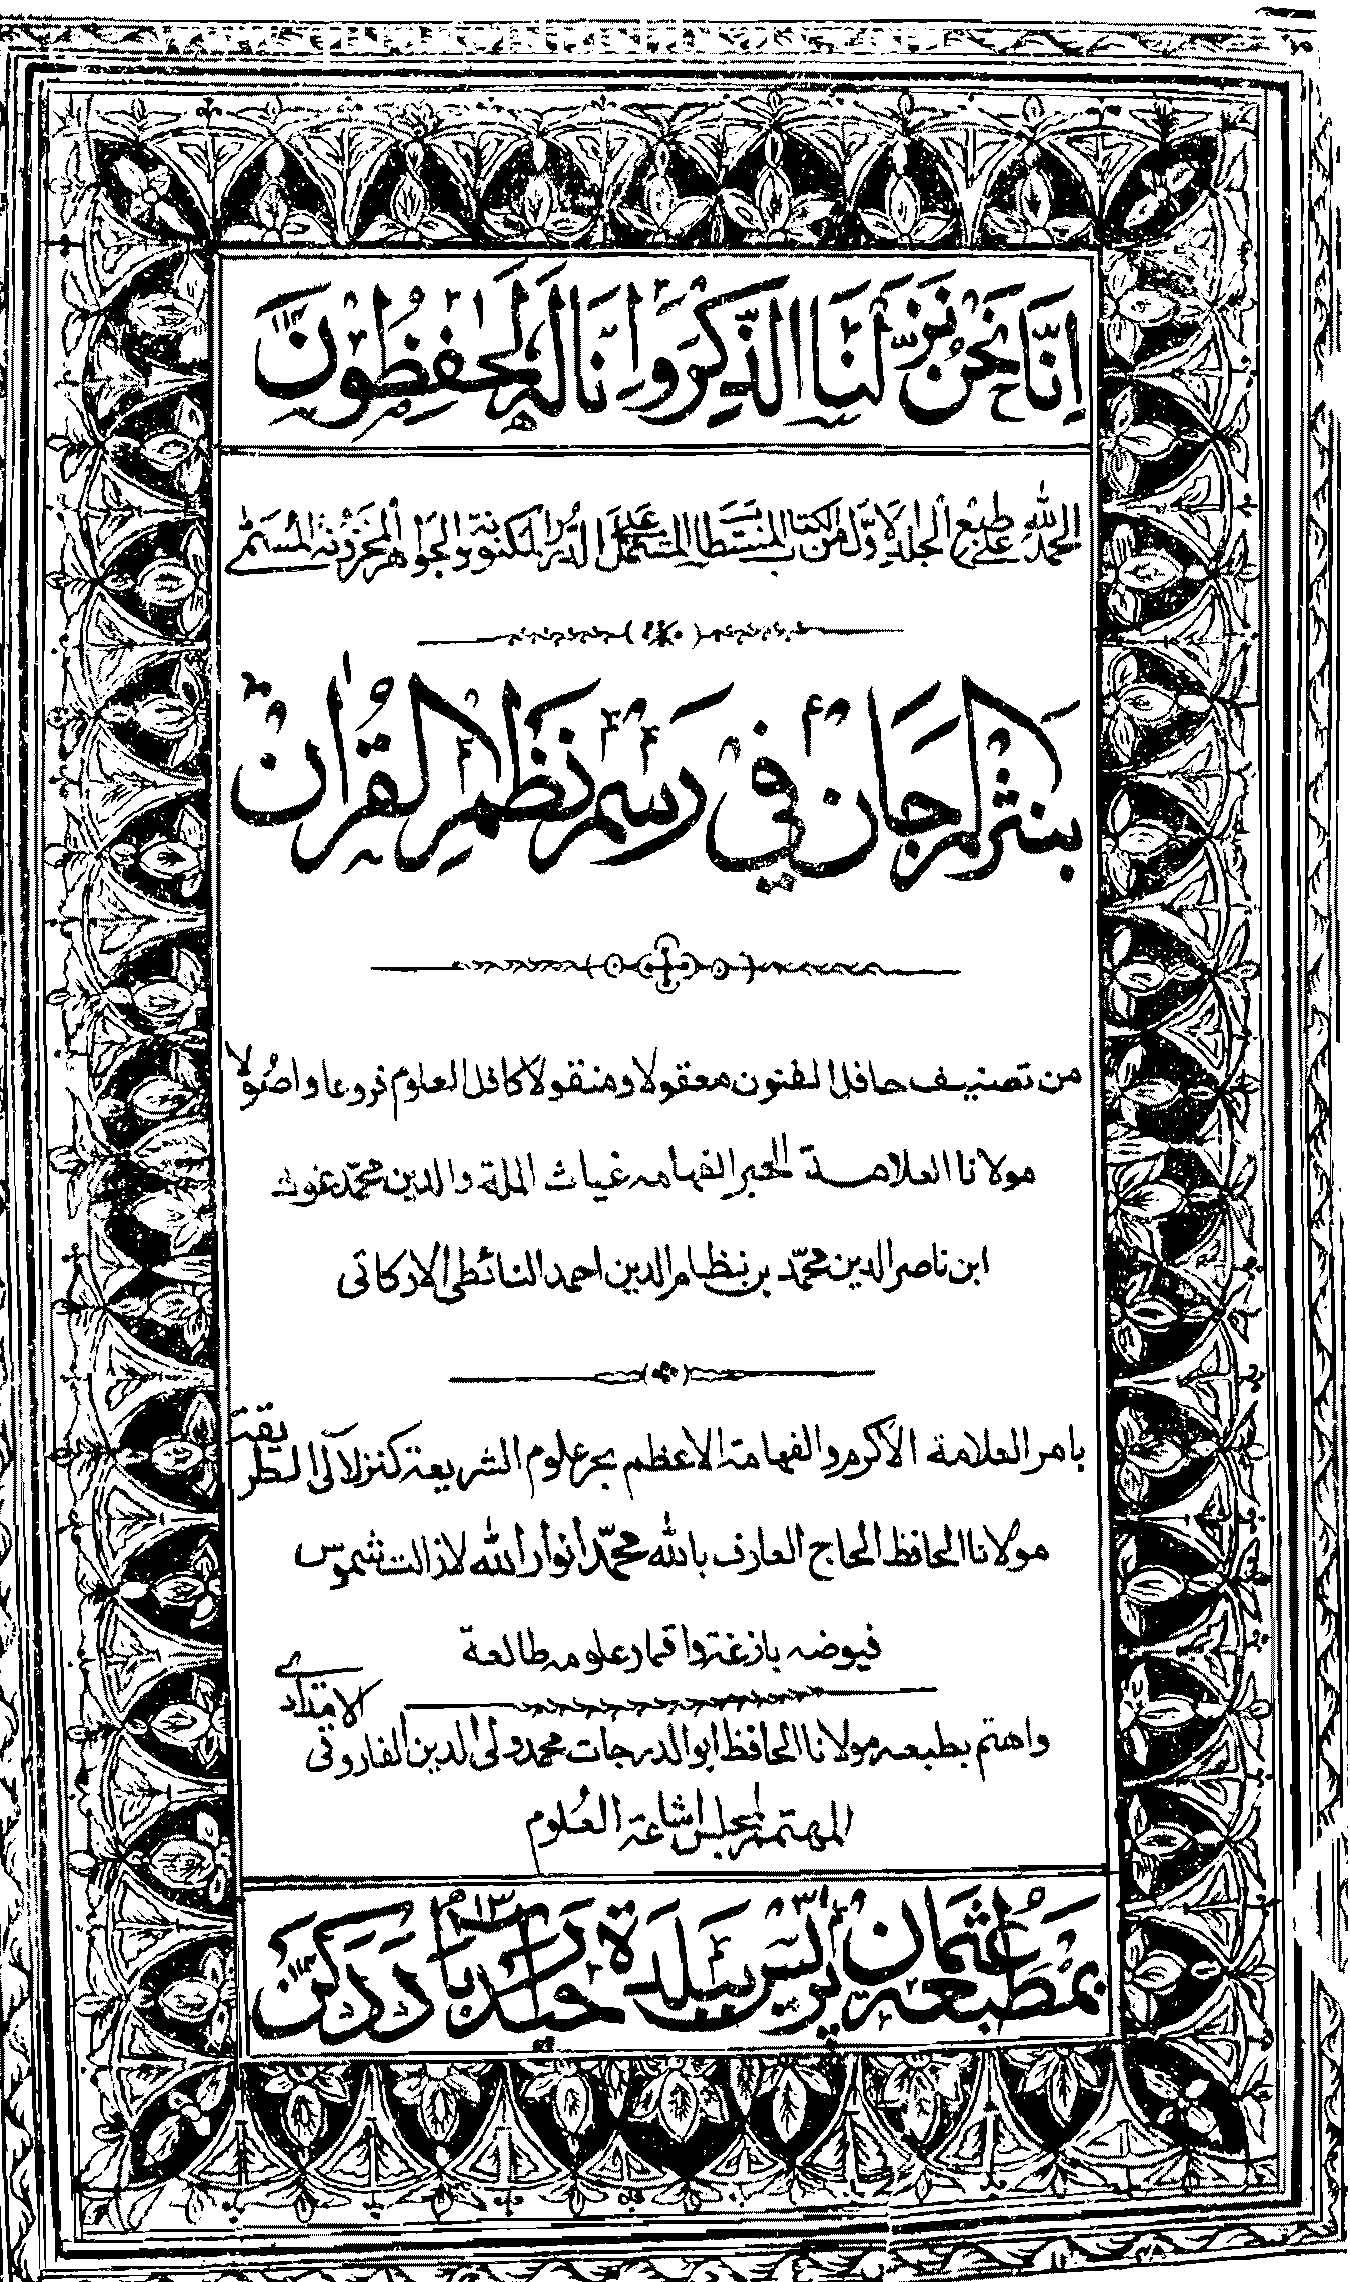 اِنَّا نَحْنُ نَزَّلْنَا الذِّكْرَ وَاِنَّا لَهٗ لَحٰفِظُوْنَ
الحمد لله على طبع الجلد الاول من الكتاب المستطاب المشتمل على الدرر المكنونة والجواهر المخزونة المسمّٰى
بنثر المرجان في رسم نظم القراٰن
من تصنيف حافل الفنون معقولا ومنقولا كافل العلوم فروعا واصولا
مولانا العلامة الحبر الفهامه غياث الملة والدين محمد غوث
ابن ناصر الدين محمد بن نظام الدين احمد النائطى الاركاتى
بامر العلامة الاكرم والفهامة الاعظم بحر علوم الشريعة كنز لآلى الطريقة
مولانا الحافظ الحاج العارف بالله محمد انوار الله لازالت شموس
فيوضه بازغة واقمار علومه طالعة
واهتم بطبعه مولانا الحافظ ابو الدرجات محمد ولى الدين الفاروقى
المهتمم لمجلس اشاعة العلوم
بمطبعه عثمان پريس ببلدة حيدرباد دكن